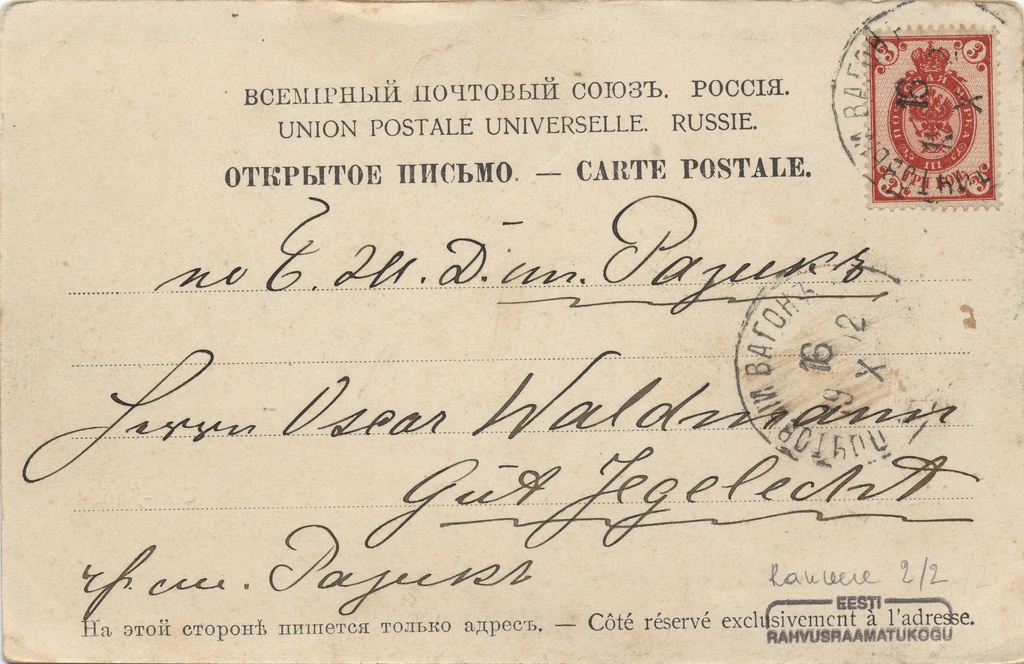 ВСЕМІРНЫЙ ПОЧТОВЫЙ СОЮЗЪ. РОССІЯ.
UNION POSTALE UNIVERSELLE. RUSSIE.
ОТКРЫТОЕ ПИСЬМО. — CARTE POSTALE.
3 3
3 3
по Б. Ж. Д. ст. Разикъ
ПОЧТОВЫЙ ВАГОНЪ
16 X
Herrn Oscar Waldmann
Gut Jegelecht
чр. ст. Разикъ
2/2
На этой сторонѣ пишется только адресъ. — Côté réservé exclusivement à l'adresse.
EESTI
RAHVUSRAAMATUKOGU